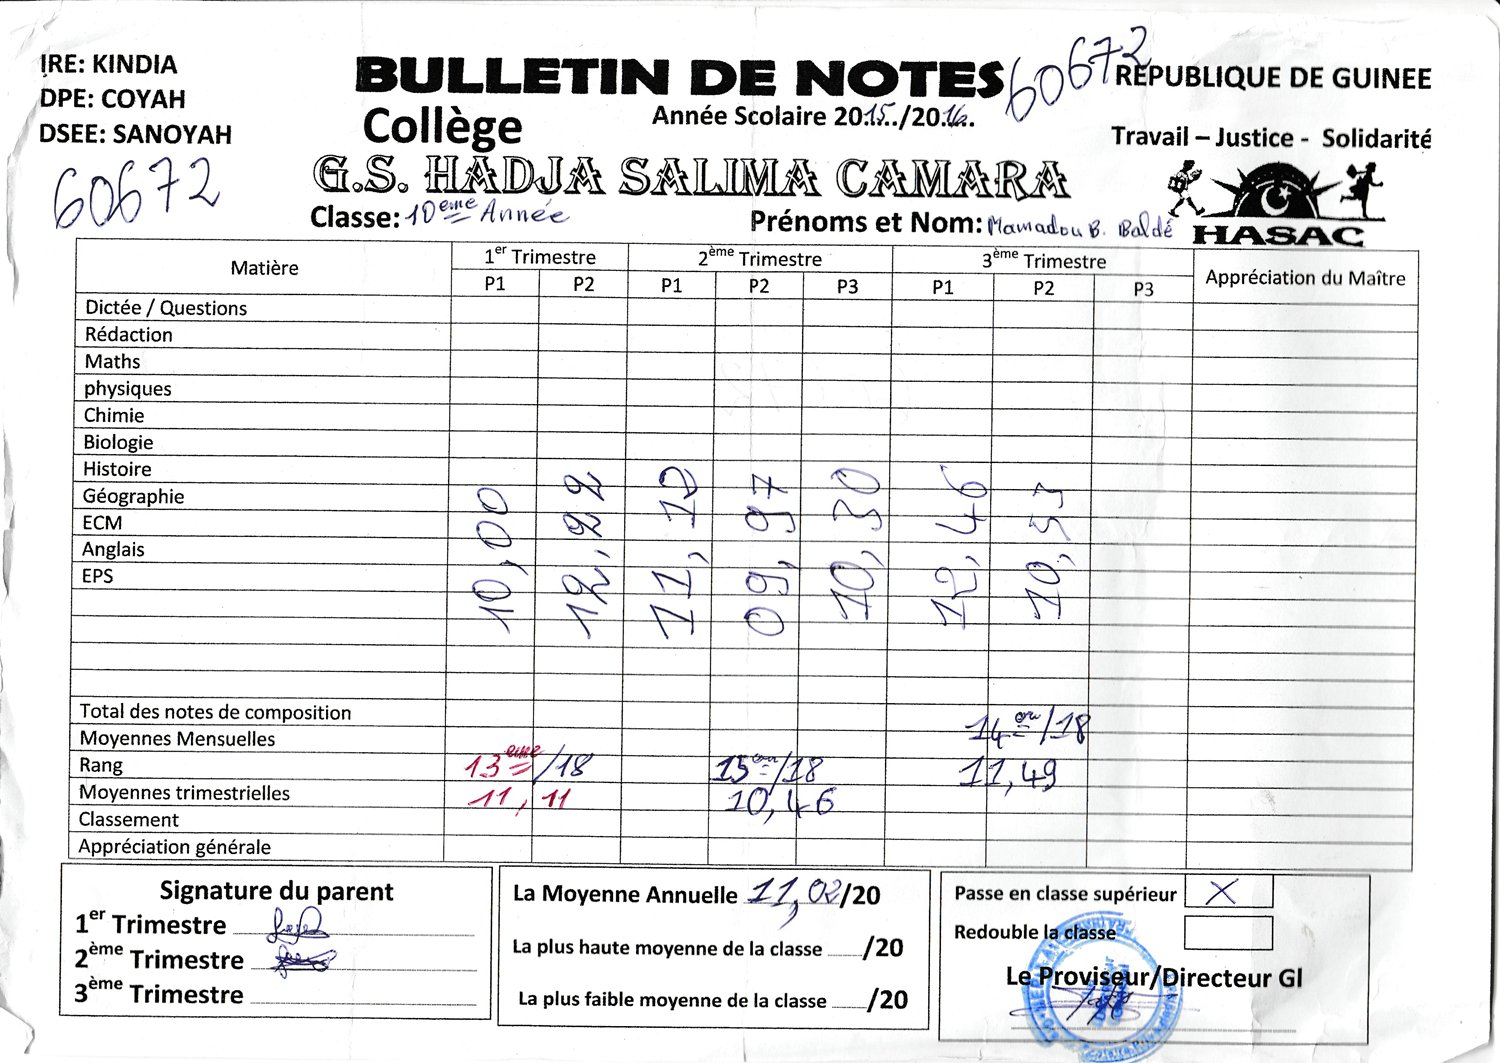 IRE: KINDIA
DPE: COYAH
DSEE: SANOYAH
60672
BULLETIN DE NOTES
Année Scolaire 2015../2016..
Collège
60672
REPUBLIQUE DE GUINEE
Travail – Justice - Solidarité
G.S. HADJA SALIMA CAMARA
HASAC
Classe: 10eme Année
Prénoms et Nom: Mamadou B. Baldé
Matière 1er Trimestre 2ème Trimestre 3ème Trimestre Appréciation du Maître
P1 P2 P1 P2 P3 P1 P2 P3
Dictée / Questions
Rédaction
Maths
physiques
Chimie
Biologie
Histoire
Géographie
ECM
Anglais
EPS
10,00 12,22 11,10 09,97 10,30 12,46 10,53
Total des notes de composition
Moyennes Mensuelles 14em/18
Rang 13eme/18 15em/18 11,49
Moyennes trimestrielles 11,11 10,46
Classement
Appréciation générale
Signature du parent
1er Trimestre
2ème Trimestre
3ème Trimestre
La Moyenne Annuelle 11,02/20
La plus haute moyenne de la classe ....../20
La plus faible moyenne de la classe ......./20
Passe en classe supérieur X
Redouble la classe
Le Proviseur/Directeur Gl